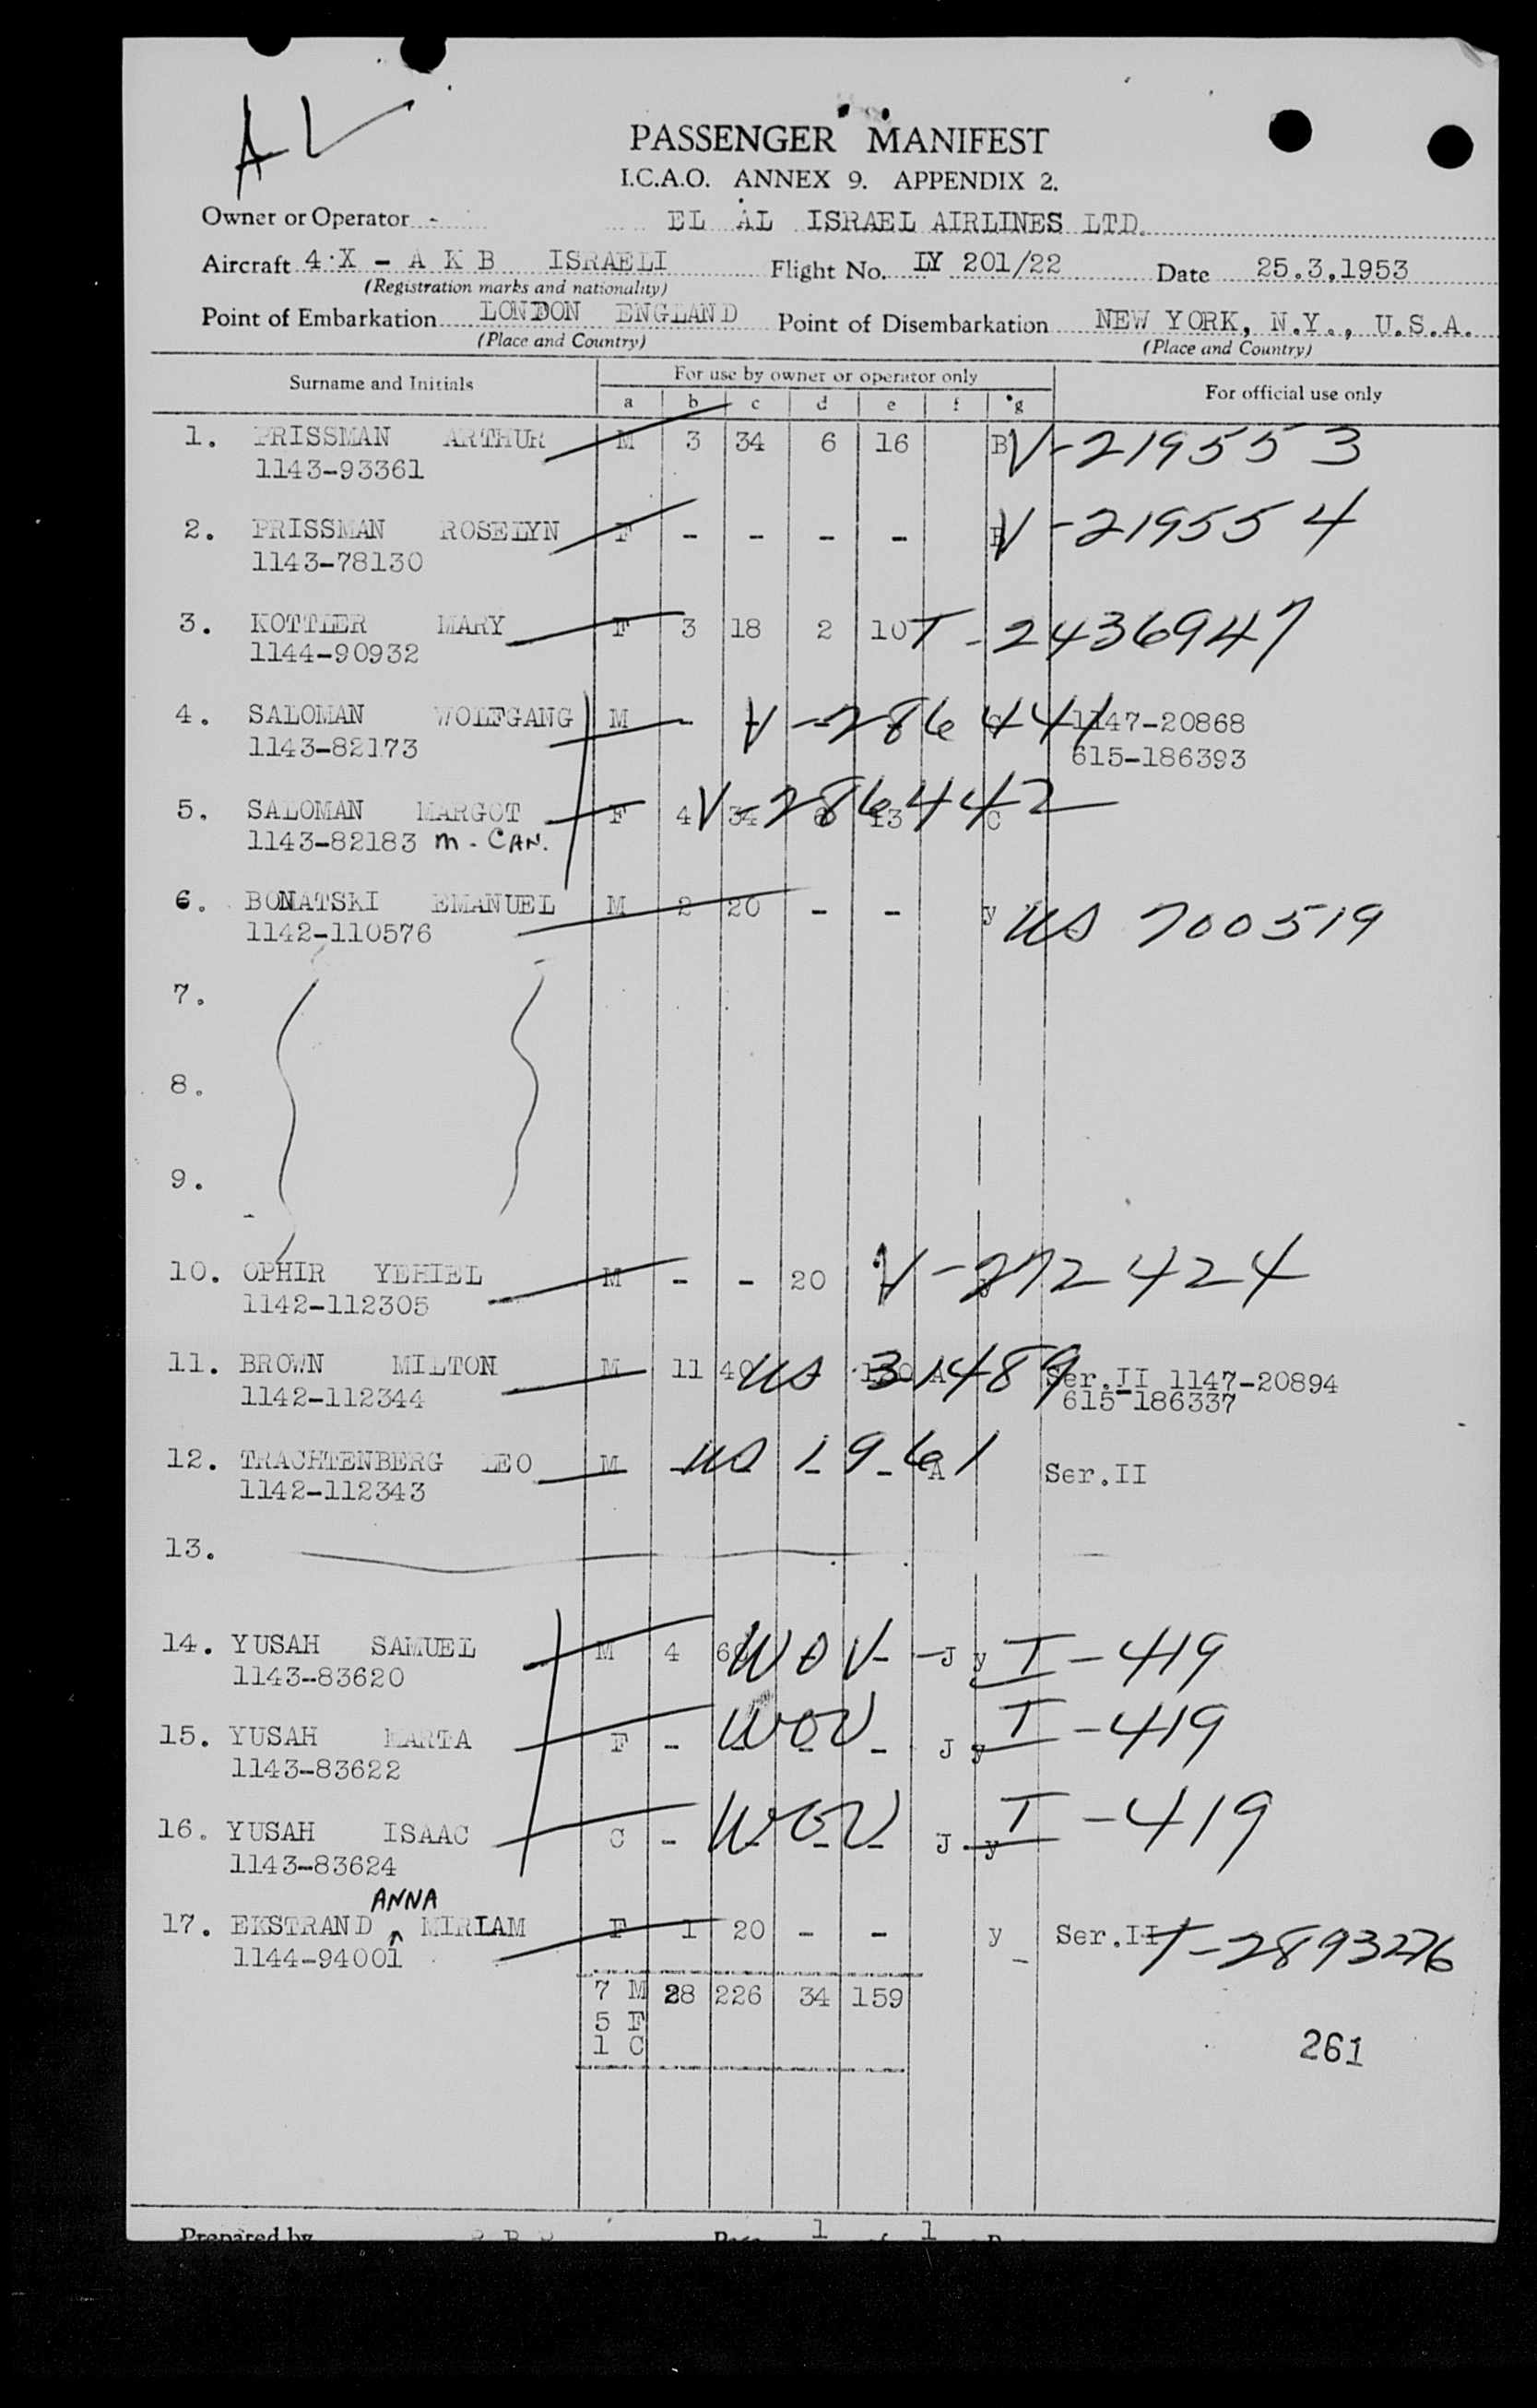 AL
PASSENGER MANIFEST
I.C.A.O. ANNEX 9. APPENDIX 2.
Owner or Operator - EL AL ISRAEL AIRLINES LTD.
Aircraft 4·X - A K B ISRAELI Flight No. LY 201/22 Date 25.3.1953
(Registration marks and nationality)
Point of Embarkation LONDON ENGLAND Point of Disembarkation NEW YORK, N.Y., U.S.A.
(Place and Country) (Place and Country)
Surname and Initials For use by owner or operator only For official use only
a b c d e f g
1. PRISSMAN ARTHUR M 3 34 6 16 B V-219553
1143-93361
2. PRISSMAN ROSELYN F - - - - B V-219554
1143-78130
3. KOTTLER MARY F 3 18 2 10 T-2436947
1144-90932
4. SALOMAN WOLFGANG M - V-286441 1147-20868
1143-82173 615-186393
5. SALOMAN MARGOT F 4 34 6 13 C V-286442
1143-82183 M-CAN.
6. BONATSKI EMANUEL M 2 20 - - y US 700519
1142-110576
7.
8.
9.
10. OPHIR YEHIEL M - - 20 V-272424
1142-112305
11. BROWN MILTON M 11 40 120 A US 31489 Ser.II 1147-20894
1142-112344 615-186337
12. TRACHTENBERG LEO M - - - - A US 1961 Ser.II
1142-112343
13.
14. YUSAH SAMUEL M 4 60 WOV - J y I-419
1143-83620
15. YUSAH MARTA F - WOV - J y I-419
1143-83622
16. YUSAH ISAAC C - WOV - J y I-419
1143-83624
ANNA
17. EKSTRAND ^ MIRIAM F 1 20 - - y Ser.II T-2893276
1144-94001
7 M 28 226 34 159
5 F
1 C
261
Prepared by Page 1 of 1